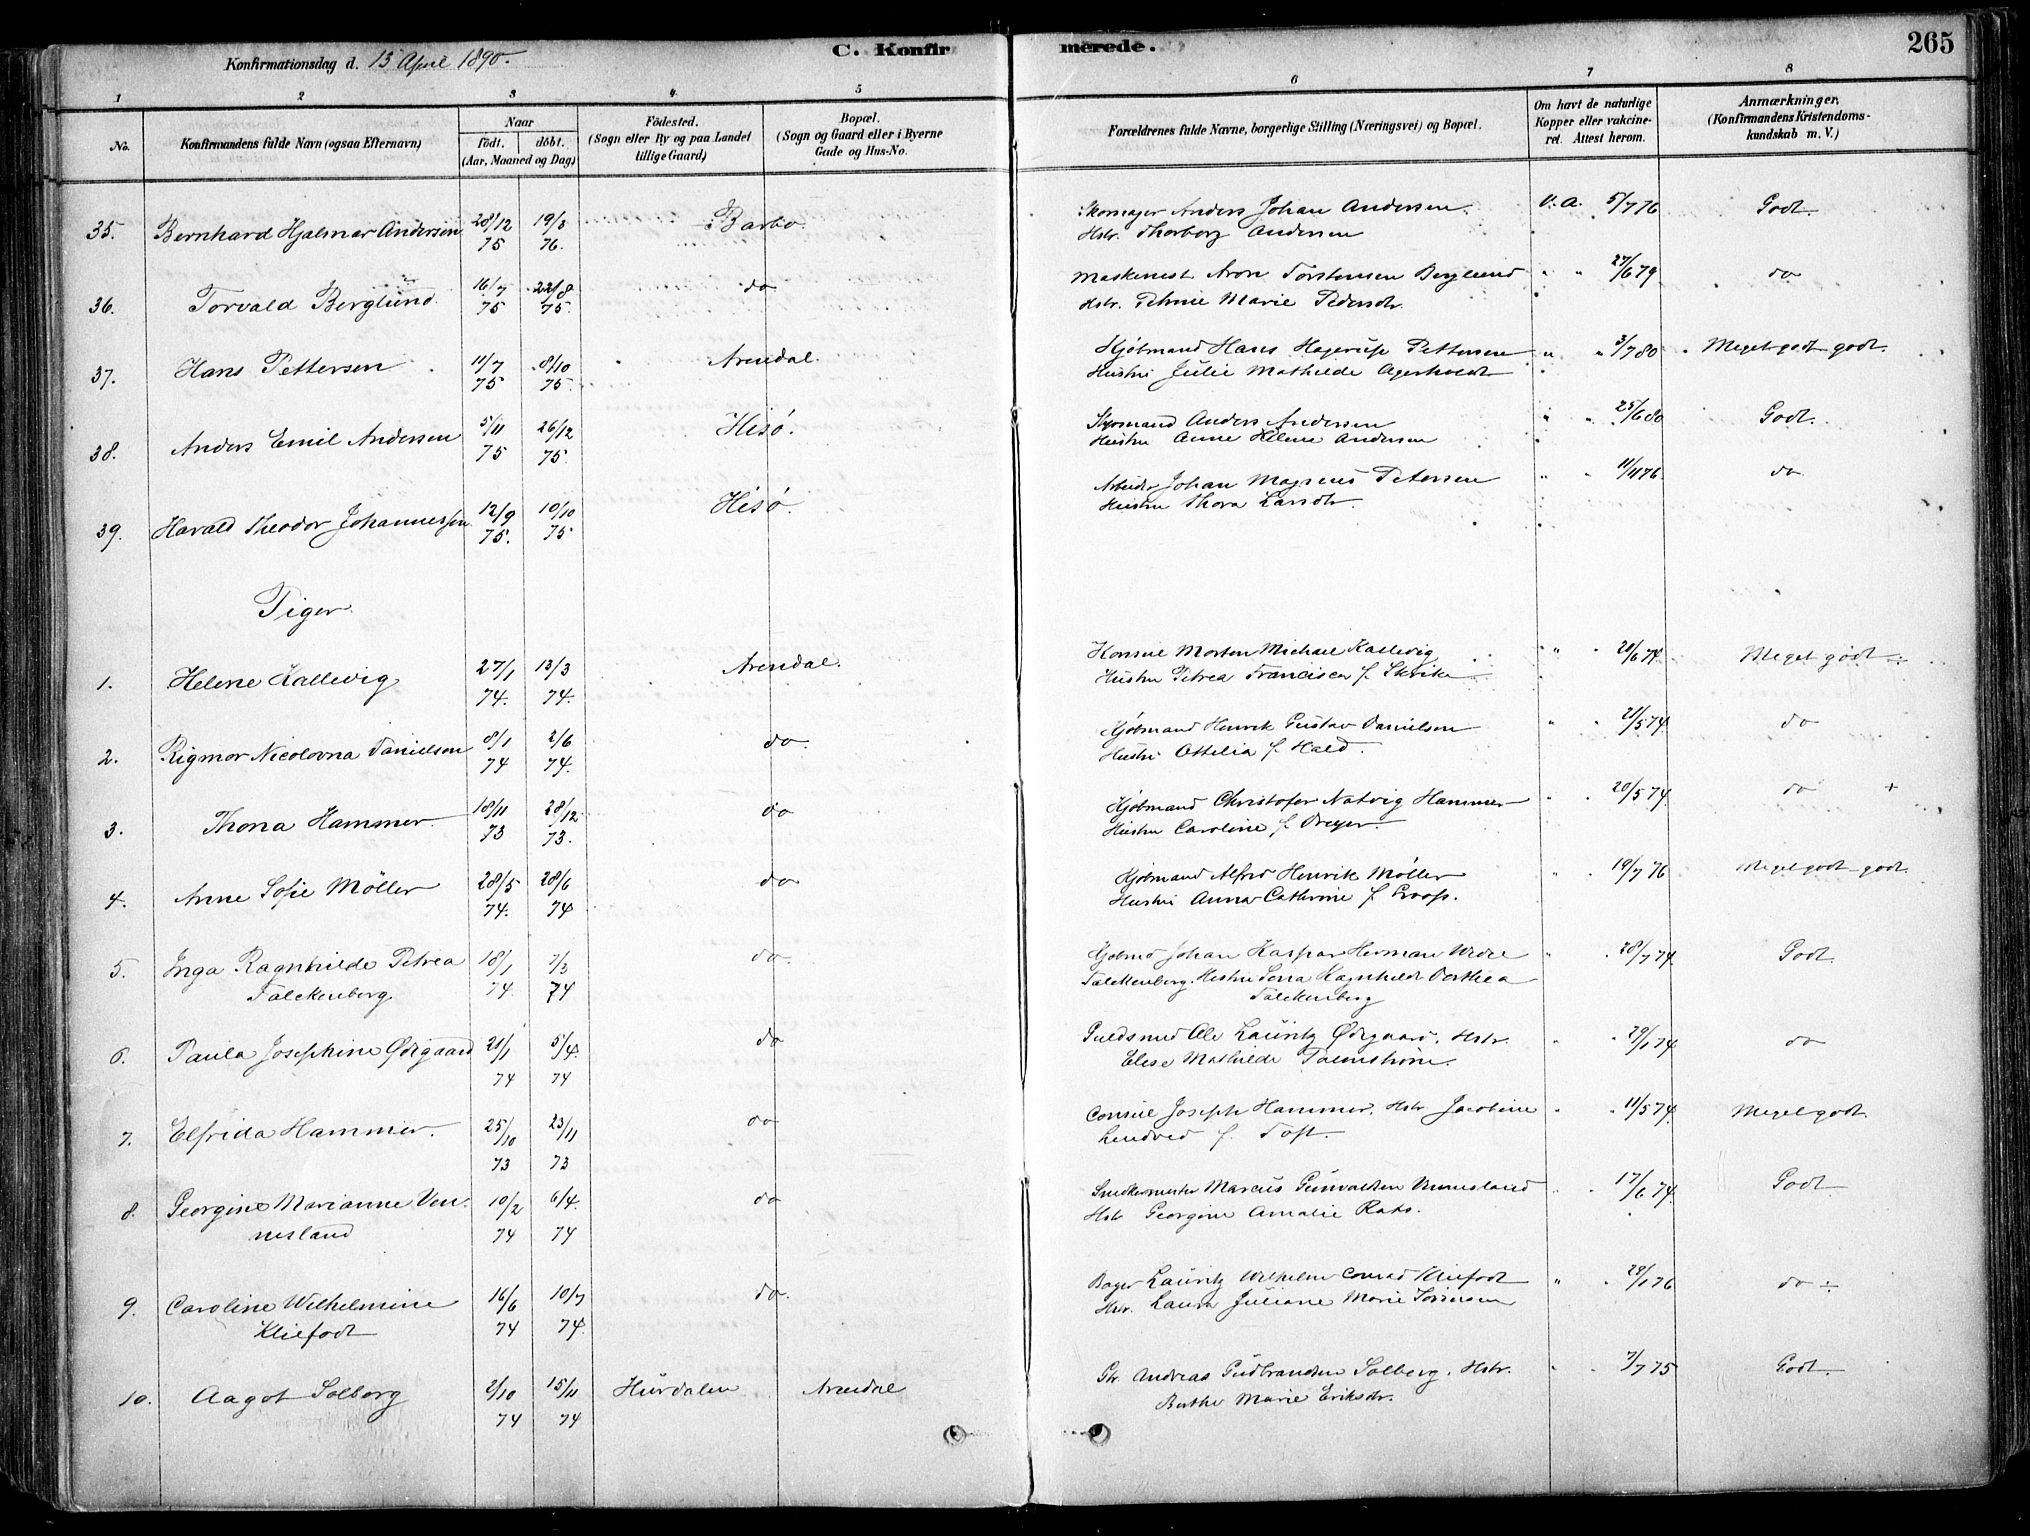 Konfirmationsdag d. 13 April 1890.
C. Konfirmerede.
265
1 2 3 4 5 6 7 8
No.
Konfirmandens fulde Navn (ogsaa Efternavn)
Naar
födt. döbt.
(Aar, Maaned og Dag)
Födested.
(Sogn eller By og paa Landet
tillige Gaard)
Bopæl.
(Sogn og Gaard eller i Byerne
Gade og Hus-No.
Forældrenes fulde Navne, borgerlige Stilling (Næringsvei) og Bopæl.
Om havt de naturlige
Kopper eller vakcine-
ret. Attest herom.
Anmærkninger.
(Konfirmandens Kristendoms-
kundskab m. V.)
35. Bernhard Hjalmar Andersen 28/12 75 19/3 76. Barbo. Skomager Anders Johan Andersen. v. a. 5/7 76 Godt.
Hstr. Thorborg Andersen
36. Torvald Berglund 16/7 75 22/8 75. do Maskenest Aron Torstensen Berglund " " 27/6 79 do
Hstr. Petrine Marie Pedersdtr.
37. Hans Pettersen 11/7 75 8/10 75. Arendal. Kjöbmand Hans Hagerup Pettersen " " 3/7 80 Meget godt-godt.
Hustru Julie Mathilde Agerholdt
38. Anders Emil Andersen 5/11 75 26/12 75. Hisö. Anders Andersen " " 25/6 80 Godt.
Hustru Anne Helene Andersen
39. Harald Theodor Johannessen 12/9 75. 10/10 75 Hisö. Arbeider Johan Magnus Petersen " " 11/4 76. do
Hustru Thora Larsdtr.
Piger.
1. Helene Kallevig 27/1 74. 13/3 74. Arendal. Konsul Morten Michael Kallevig " " 20/6 74. Meget godt ÷
Hustru Petrea Francisca f.
2. Rigmor Nicolovna Danielsen 8/1 74 2/6 74. do. Kjöbmand Henrik Gustav Danielsen " " 21/5 74. do
Hustru Ottilia f. Hald.
3. Thona Hammer. 18/11 73 28/12 73. do Kjöbmand Christofer Natvig Hammer " " 20/5 74. do +
Hustru Caroline f. Dreyer.
4. Anne Sofie Möller 28/5 74. 28/6 74 do Kjöbmand Alfred Henrik Möller " 19/7 76 Meget godt-godt.
Hustru Anna Cathrine f.
5. Inga Ragnhilde Petrea 18/1 74. 7/3 74 do. Kjöbmd Johan Kaspar Herman Wedel " 28/7 74. Godt.
Falckenberg. Falckenberg. Hustru Lena Ragnhilde Dorthea
Falckenberg
6. Paula Josephine Ødegaard 21/1 74 5/4. 74 do Guldsmed Ole Lauritz Ødegaard, Hstr. " 29/1 74. do
Elise Mathilde
7. Elfrida Hammer. 25/10 73 23/11 73 do Consul Joseph Hammer, Hstr. Jacobine " 11/5 74. Meget godt.
f. Toft.
8. Georgine Marianne Ven- 10/2 74 6/4. 74 do Snedkermester Marcus Gunvaldsen Vennesland " 17/6 74. Godt
nesland Hstr Georgine Amalie
9. Caroline Wilhelmine 16/6 74 10/7 74. do. Bager Lauritz Wilhelm Conrad Kliefodt " 28/1 76 do ÷
Kliefodt Hstr. Laura Juliane Marie Sörensen
10. Aagot Solberg 2/10 74 15/11 74 Hurdalen Arendal Andreas Gudbrandsen Solberg, Hstr. " 7/7 75 Godt.
Berthe Marie Eriksdtr.